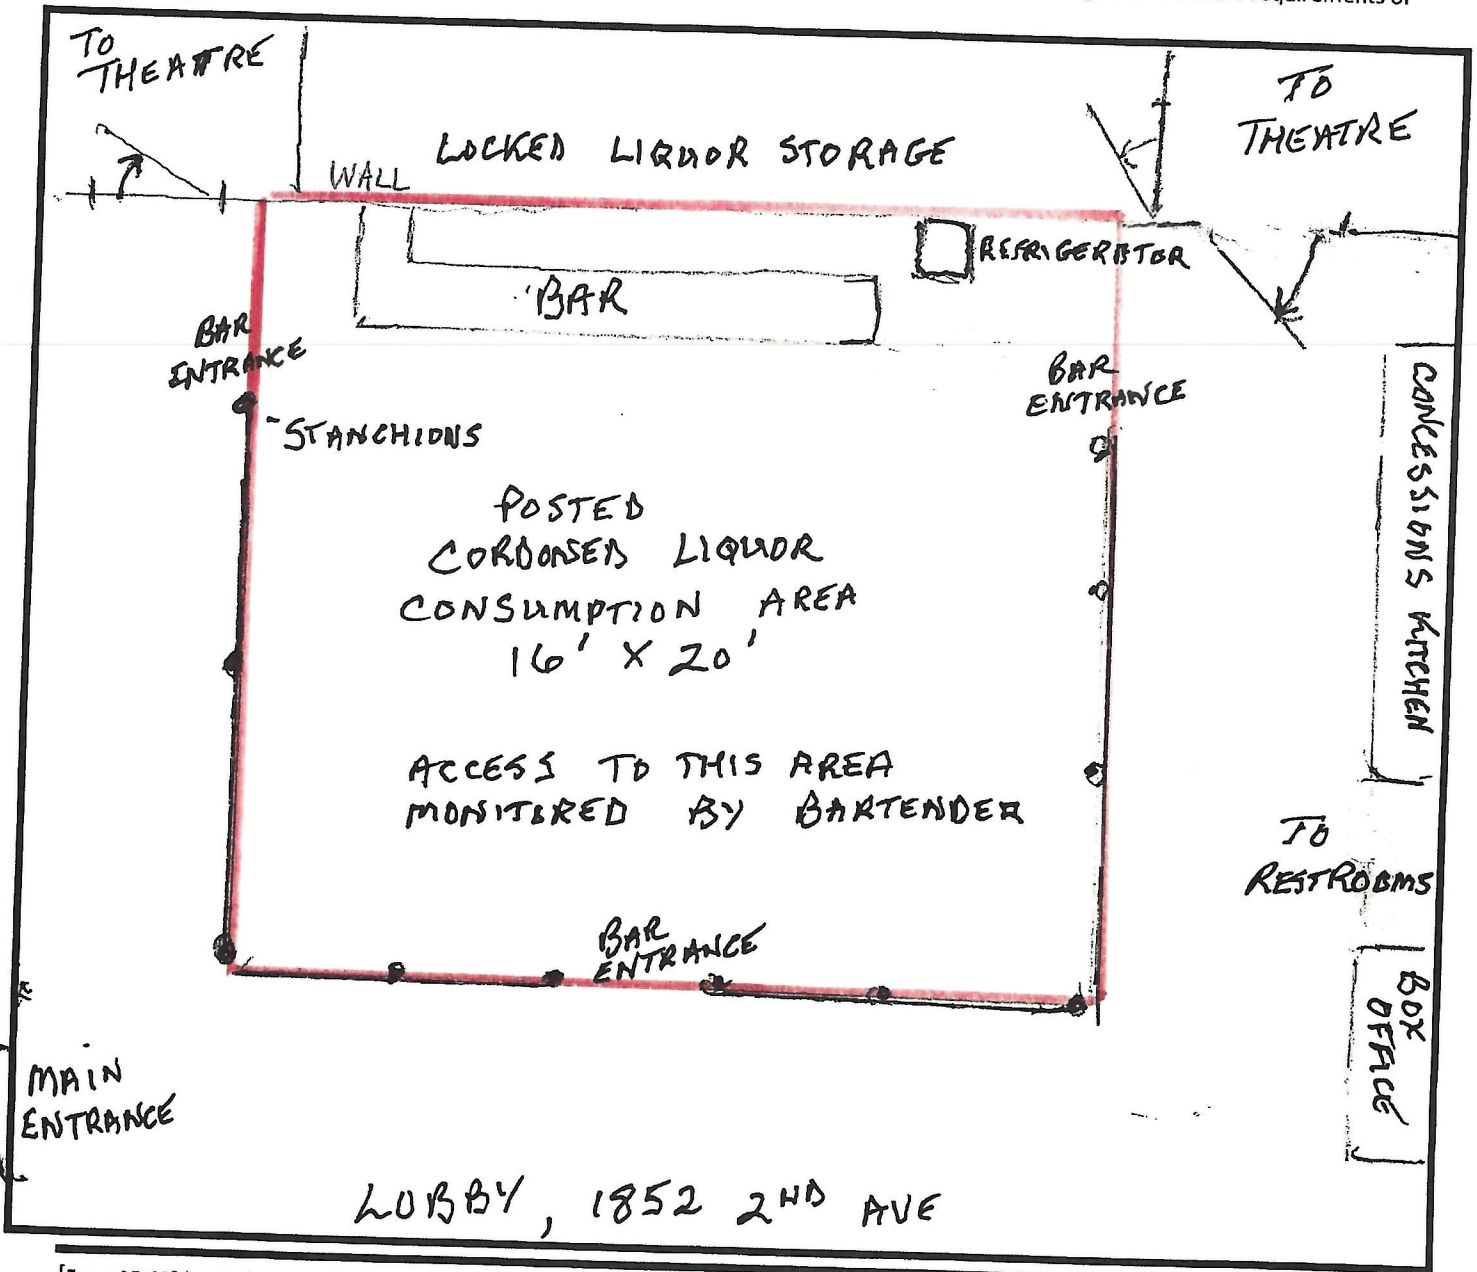 quirements of
TO
THEATRE
TO
THEATRE
LOCKED LIQUOR STORAGE
WALL
REFRIGERATOR
BAR
BAR
ENTRANCE
BAR
ENTRANCE
STANCHIONS
CONCESSIONS KITCHEN
POSTED
CORDONED LIQUOR
CONSUMPTION AREA
16' X 20'
ACCESS TO THIS AREA
MONITORED BY BARTENDER
TO
RESTROOMS
BAR
ENTRANCE
BOX
OFFICE
MAIN
ENTRANCE
LOBBY, 1852 2ND AVE